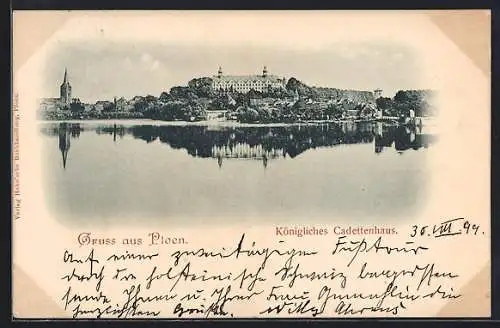 Verlag Hahn'sche Buchhandlung, Ploen.
Gruss aus Ploen.
Königliches Cadettenhaus.
30. VIII. 99.
Auf einer zweitägigen Fußtour
durch die holsteinische Schweiz begriffen
sende Ihnen und Ihrer Frau Gemahlin die
herzlichsten Grüße. Willy Ahrens